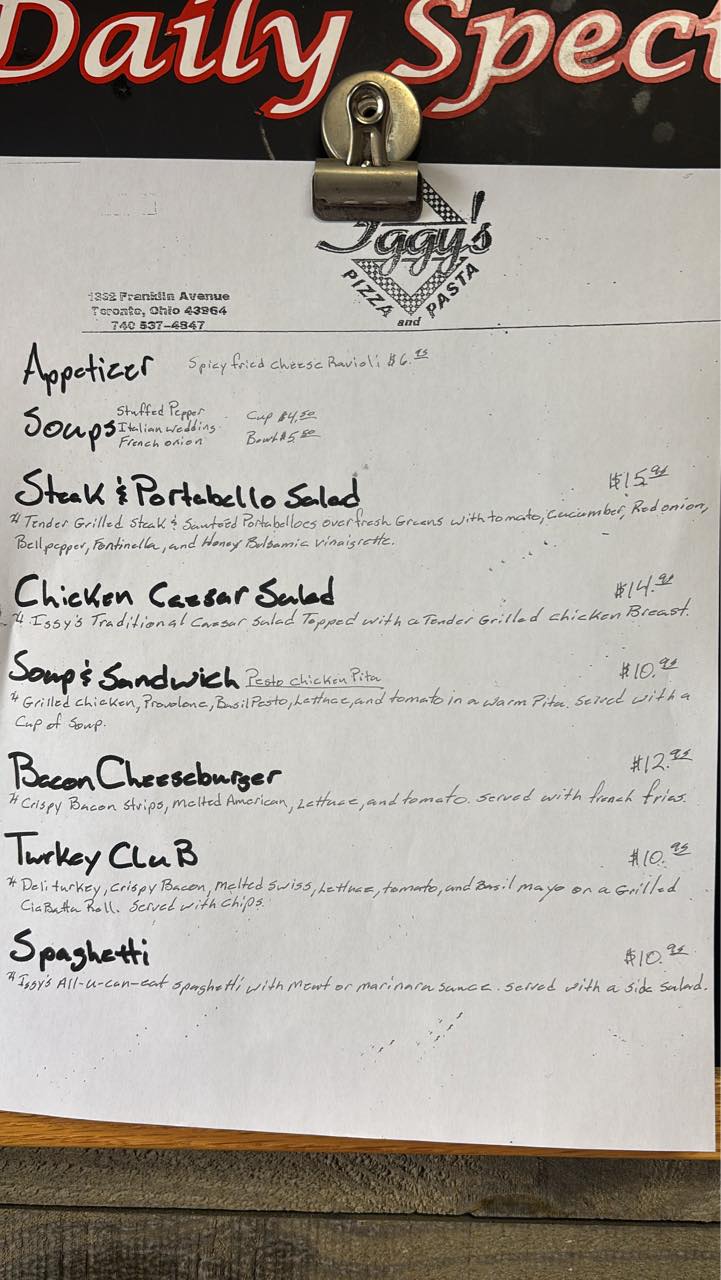 Daily Spect
Iggy's
PIZZA and PASTA
1352 Franklin Avenue
Toronto, Ohio 43964
740 537-4847
Appetizer Spicy fried cheese Ravioli $6.95
Soups Stuffed Pepper Cup $4.50
Italian wedding Bowl $5.50
French onion
Steak & Portabello Salad $15.95
* Tender Grilled Steak & Sauteed Portabelloes over fresh Greens with tomato, Cucumber, Red onion,
Bell pepper, Fontinella, and Honey Balsamic vinaigrette.
Chicken Caesar Salad $14.95
* Iggy's Traditional Caesar Salad Topped with a Tender Grilled chicken Breast.
Soup & Sandwich Pesto chicken Pita $10.95
* Grilled chicken, Provolone, Basil Pesto, Lettuce, and tomato in a warm Pita. Served with a
Cup of Soup.
Bacon Cheeseburger $12.95
* Crispy Bacon strips, melted American, Lettuce, and tomato. served with french fries.
Turkey Club $10.95
* Deli turkey, Crispy Bacon, melted Swiss, Lettuce, tomato, and Basil mayo on a Grilled
CiaBatta Roll. Served with chips.
Spaghetti $10.95
* Iggy's All-u-can-eat spaghetti with meat or marinara sauce. served with a side salad.